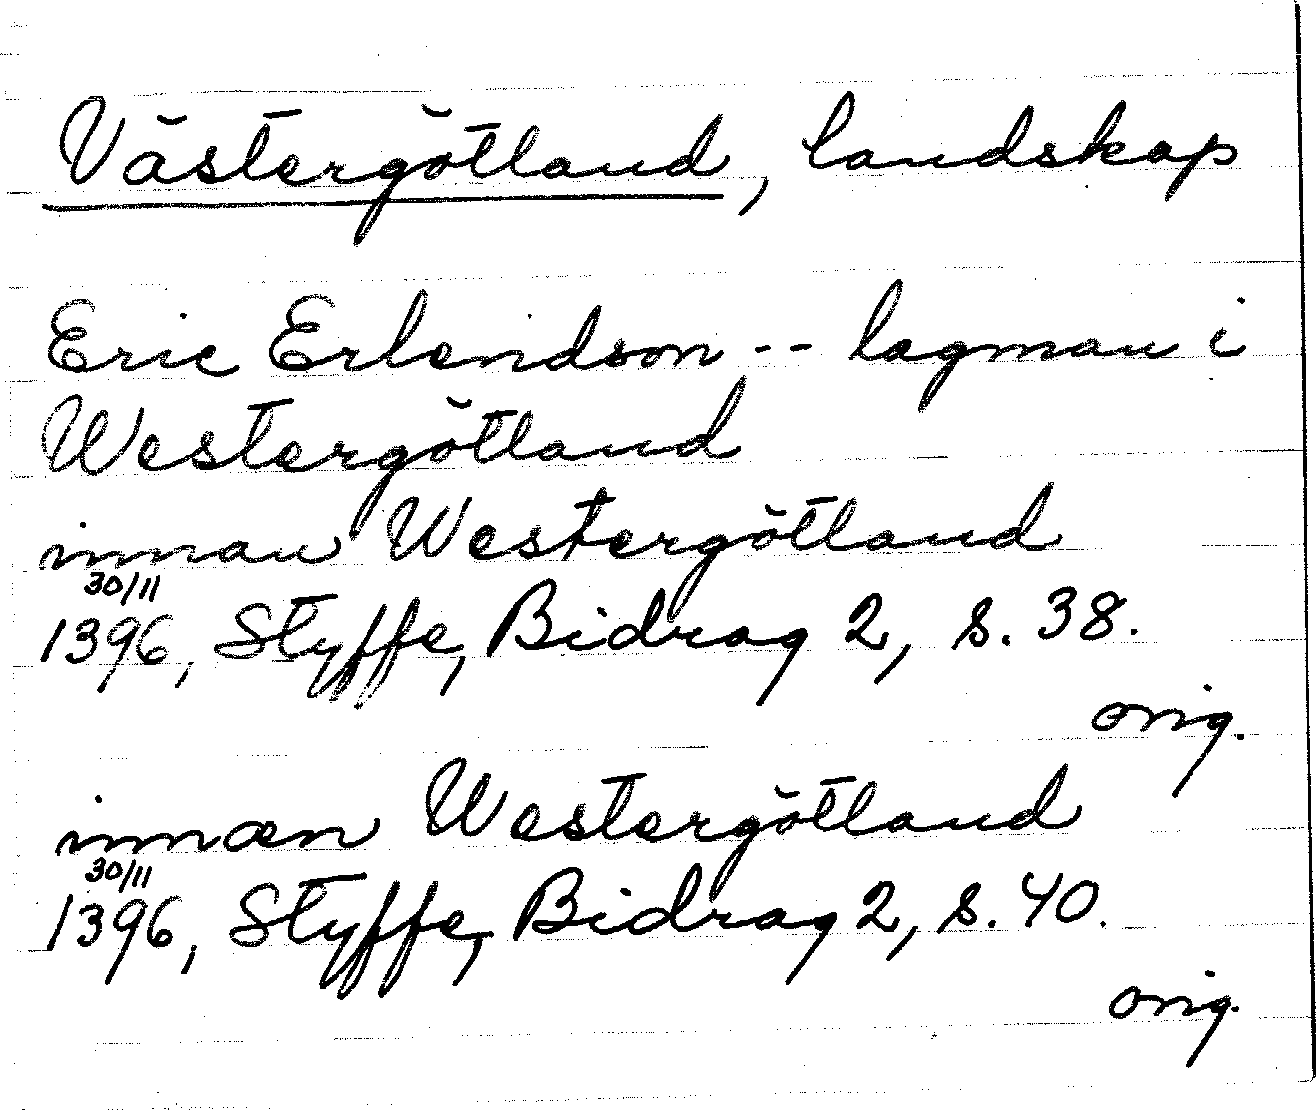 Västergötland, landskap
Eric Erlendson -- lagman i
Westergötland
innan Westergötland
30/11
1396, Styffe, Bidrag 2, s. 38.
orig.
innæn Westergötland
30/11
1396, Styffe, Bidrag 2, s. 40.
orig.